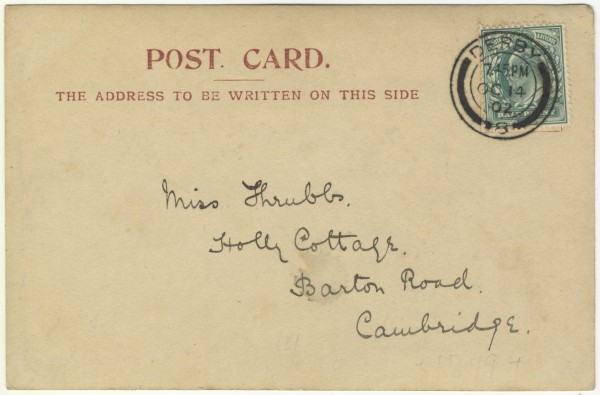 POST CARD.
THE ADDRESS TO BE WRITTEN ON THIS SIDE
DERBY
7.45 PM
OC 14
02
8
Miss Thrubbs.
Holly Cottage.
Barton Road.
Cambridge.